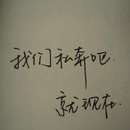 我们私奔吧.
就现在.